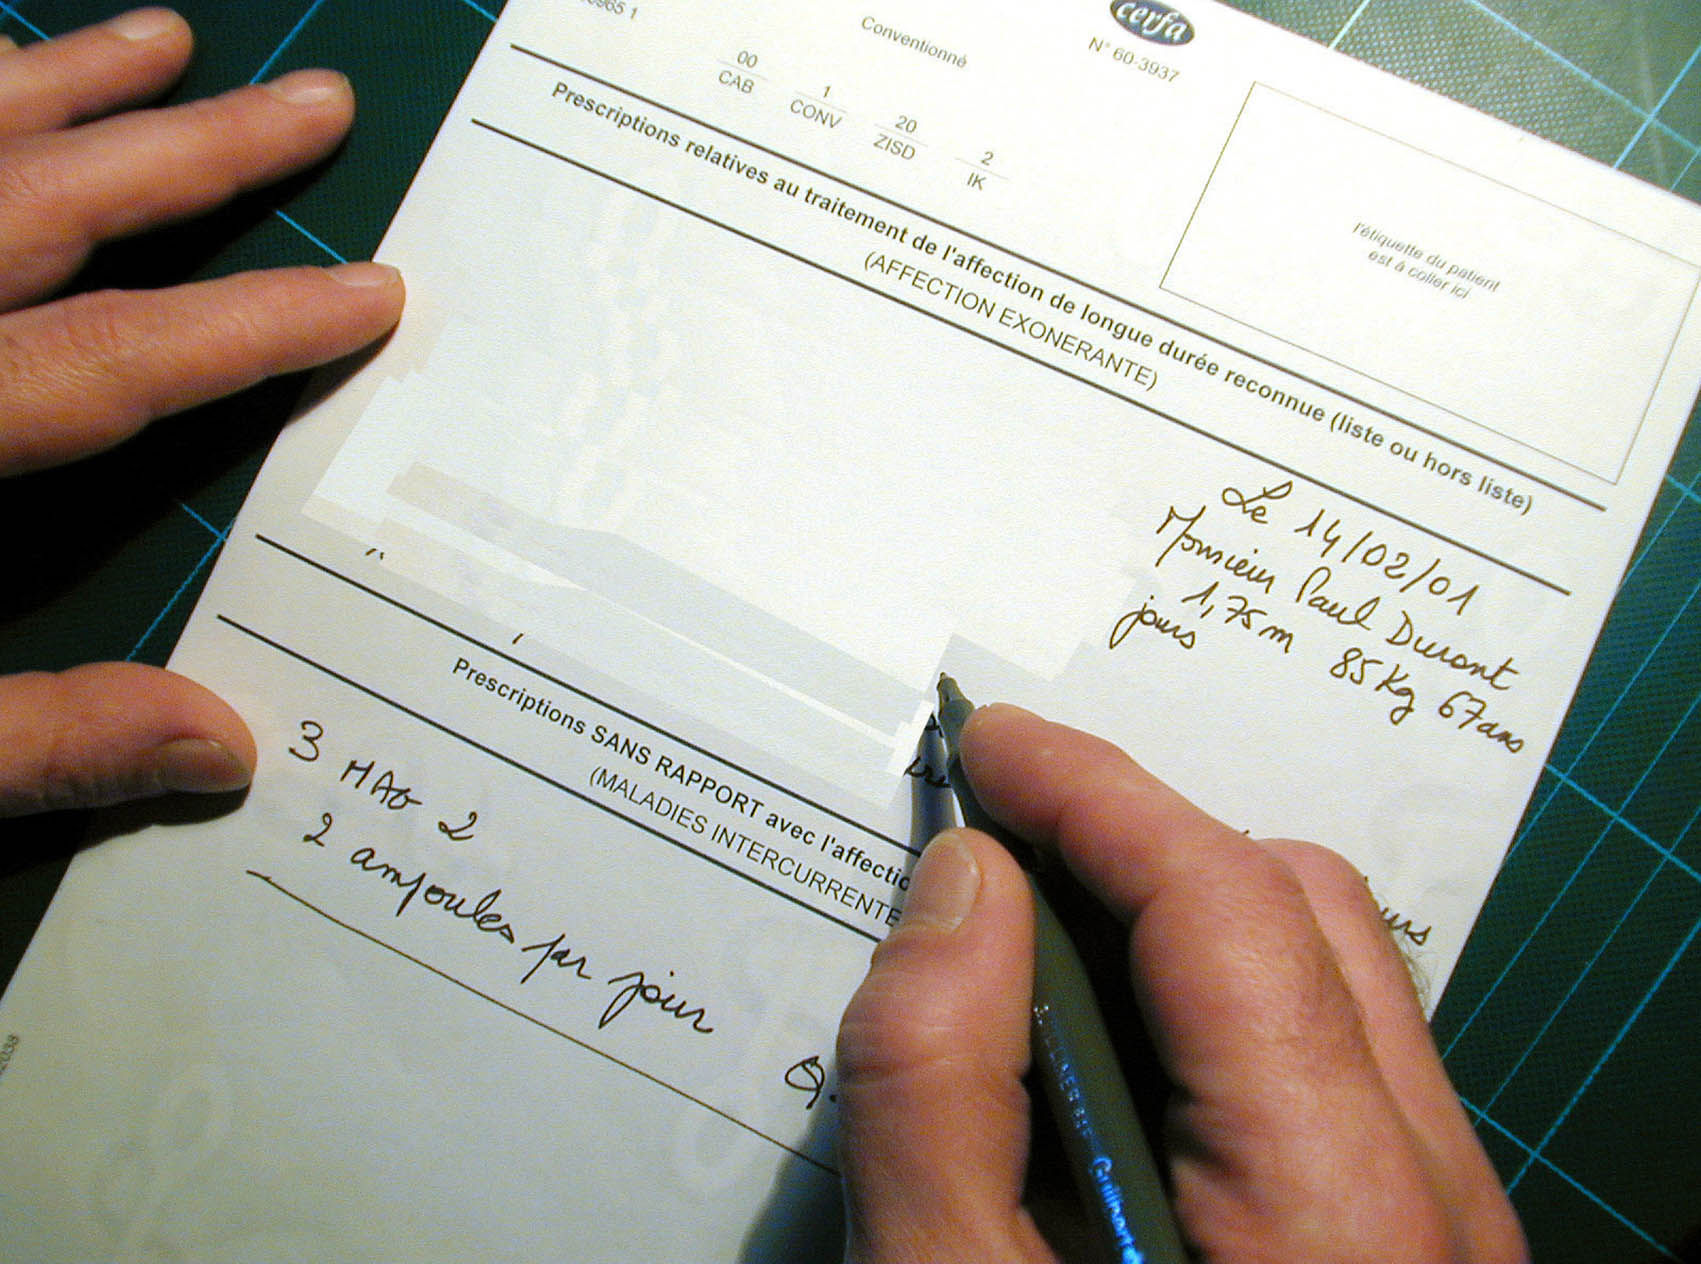 cerfa
N° 60-3937
Conventionné
00
CAB
1
CONV
20
ZISD
2
IK
l'étiquette du patient
est à coller ici
Prescriptions relatives au traitement de l'affection de longue durée reconnue (liste ou hors liste)
(AFFECTION EXONERANTE)
Le 14/02/01
Monsieur Paul Durant
1,75 m 85 Kg 67 ans
jours
Prescriptions SANS RAPPORT avec l'affectio
(MALADIES INTERCURRENTE
3 MAG 2
2 ampoules par jour